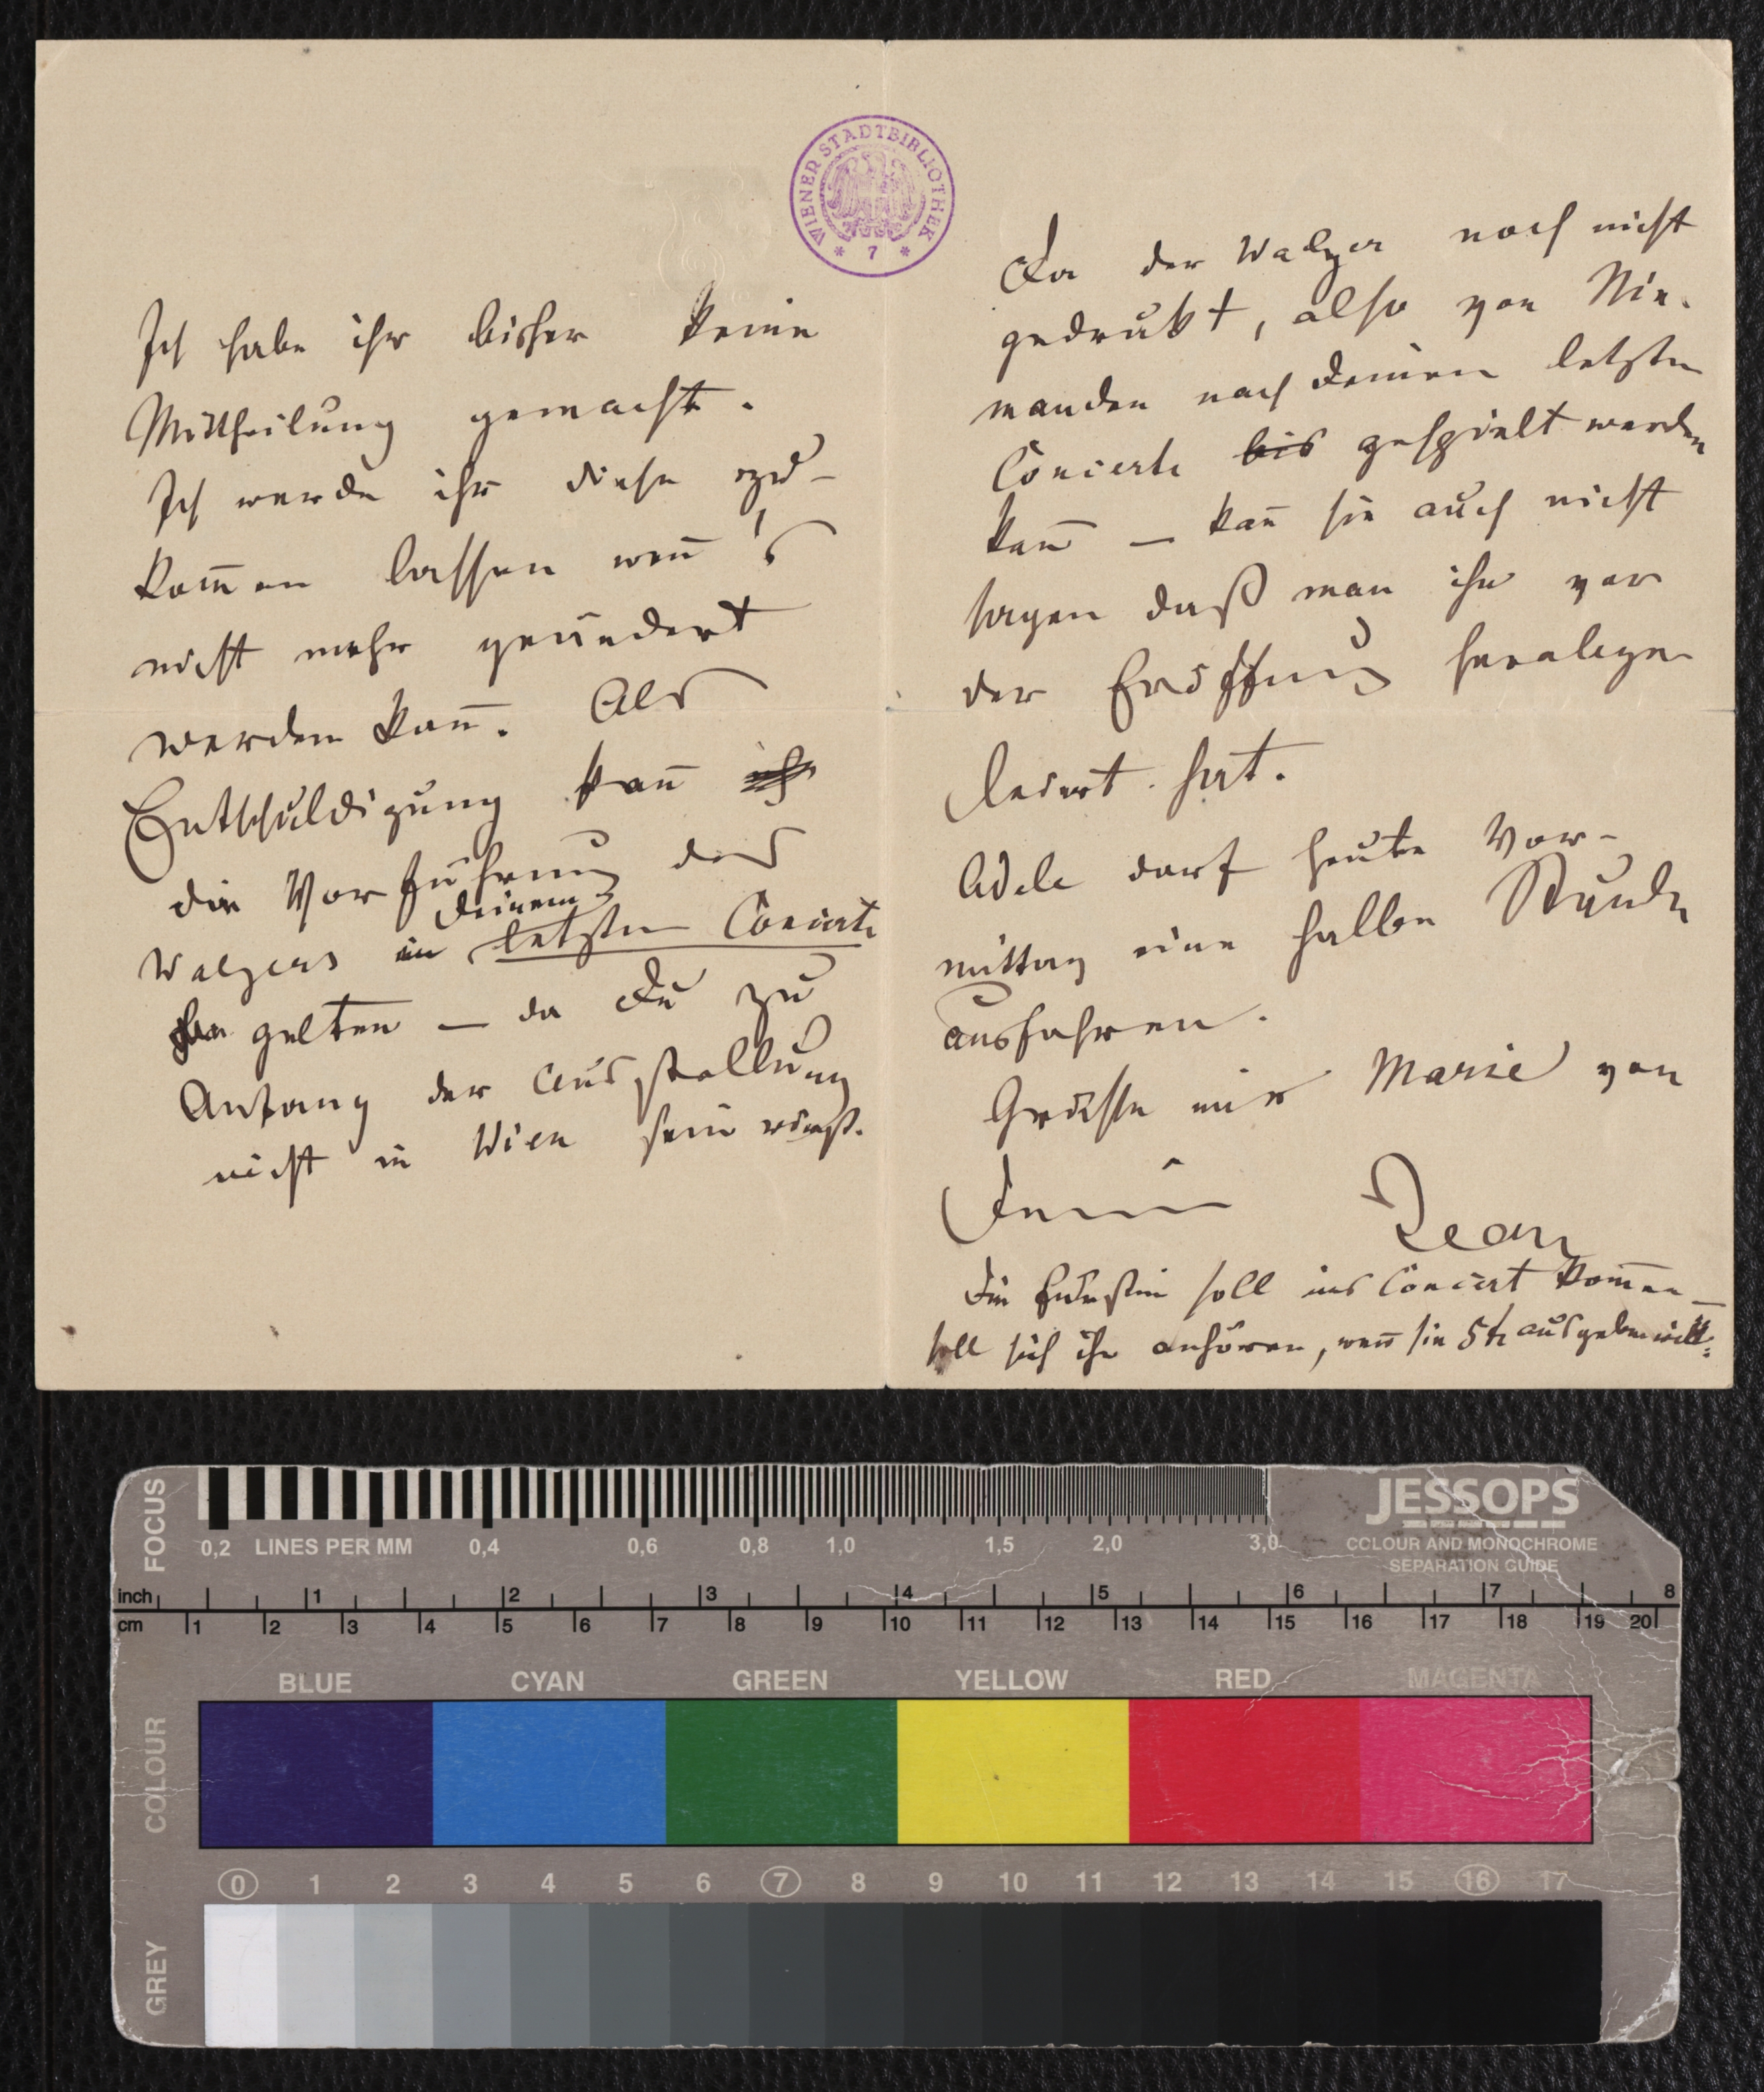 Ich habe ihr bisher keine
Mittheilung gemacht.
Ich werde ihr diese zu-
kom̅en lassen wen̅ 's
nicht mehr geändert
werden kan̅. Als
Entschuldigung kan̅
die Vorführung des
Walzers in deinem letzten Concerte
gelten — da Du zu
Anfang der Ausstellung
nicht in Wien sein wirst.
Da der Walzer noch nicht
gedrukt, also von Nie-
manden nach Deinem letzten
Concerte bis gespielt werden
kan̅ — kan̅ sie auch nicht
sagen daß man ihn vor
der Eröffnung
hat.
Adele darf heute Vor-
mittag eine halbe Stunde
ausfahren.
Grüsse mir Marie von
Deinem Jean
Die Fürstin soll ins Concert kom̅en —
soll sich ihn anhören, wen̅ sie 5 fl ausgeben will.
WIENER STADTBIBLIOTHEK
* 7 *
FOCUS
0,2 LINES PER MM 0,4 0,6 0,8 1,0 1,5 2,0 3,0
JESSOPS
COLOUR AND MONOCHROME
SEPARATION GUIDE
inch 1 2 3 4 5 6 7 8
cm 1 2 3 4 5 6 7 8 9 10 11 12 13 14 15 16 17 18 19 20
BLUE CYAN GREEN YELLOW RED MAGENTA
COLOUR
0 1 2 3 4 5 6 7 8 9 10 11 12 13 14 15 16 17
GREY